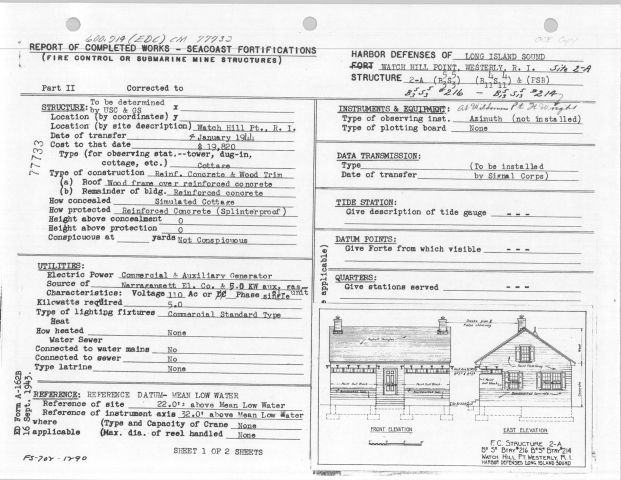 600.914 (EDC) CM 77733
REPORT OF COMPLETED WORKS - SEACOAST FORTIFICATIONS
(FIRE CONTROL OR SUBMARINE MINE STRUCTURES)
Part II Corrected to
HARBOR DEFENSES OF LONG ISLAND SOUND
FORT WATCH HILL POINT, WESTERLY, R. I. Site 2-A
STRUCTURE 2-A & (FSB)
#216 - #214
77733
STRUCTURE: To be determined by USC & GS
Location (by coordinates) x y
Location (by site description) Watch Hill Pt., R. I.
Date of transfer 4 January 1944
Cost to that date $ 19,820
Type (for observing stat.--tower, dug-in,
cottage, etc.) Cottage
Type of construction Reinf. Concrete & Wood Trim
(a) Roof Wood frame over reinforced concrete
(b) Remainder of bldg. Reinforced concrete
How concealed Simulated Cottage
How protected Reinforced Concrete (Splinterproof)
Height above concealment 0
Height above protection 0
Conspicuous at yards Not Conspicuous
UTILITIES:
Electric Power Commercial & Auxiliary Generator
Source of Narragansett El. Co. & 5.0 KW aux. gas unit
Characteristics: Voltage 110 Ac or DC Phase single
Kilowatts required 5.0
Type of lighting fixtures Commercial Standard Type
Heat
How heated None
Water Sewer
Connected to water mains No
Connected to sewer No
Type latrine None
REFERENCE: REFERENCE DATUM- MEAN LOW WATER
Reference of site 22.0': above Mean Low Water
Reference of instrument axis 32.0' above Mean Low Water
where (Type and Capacity of Crane None
applicable (Max. dia. of reel handled None
ED Form A-162B
16 Sept. 1943.
SHEET 1 OF 2 SHEETS
FS-702-1790
INSTRUMENTS & EQUIPMENT:
Type of observing inst. Azimuth (not installed)
Type of plotting board None
DATA TRANSMISSION:
Type (To be installed
Date of transfer by Signal Corps)
TIDE STATION:
Give description of tide gauge - - -
DATUM POINTS:
Give Forts from which visible - - -
applicable)
QUARTERS:
Give stations served - - -
Asphalt Shingles
FRONT ELEVATION
EAST ELEVATION
F.C. STRUCTURE 2-A
B5 S5 BTRY #216 B5 S5 BTRY #214
WATCH HILL PT. WESTERLY, R. I.
HARBOR DEFENSES LONG ISLAND SOUND